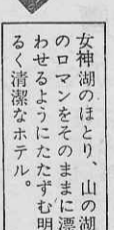 女神湖のほとり、山の湖
のロマンをそのままに漂
わせるようにたたずむ明
るく清潔なホテル。